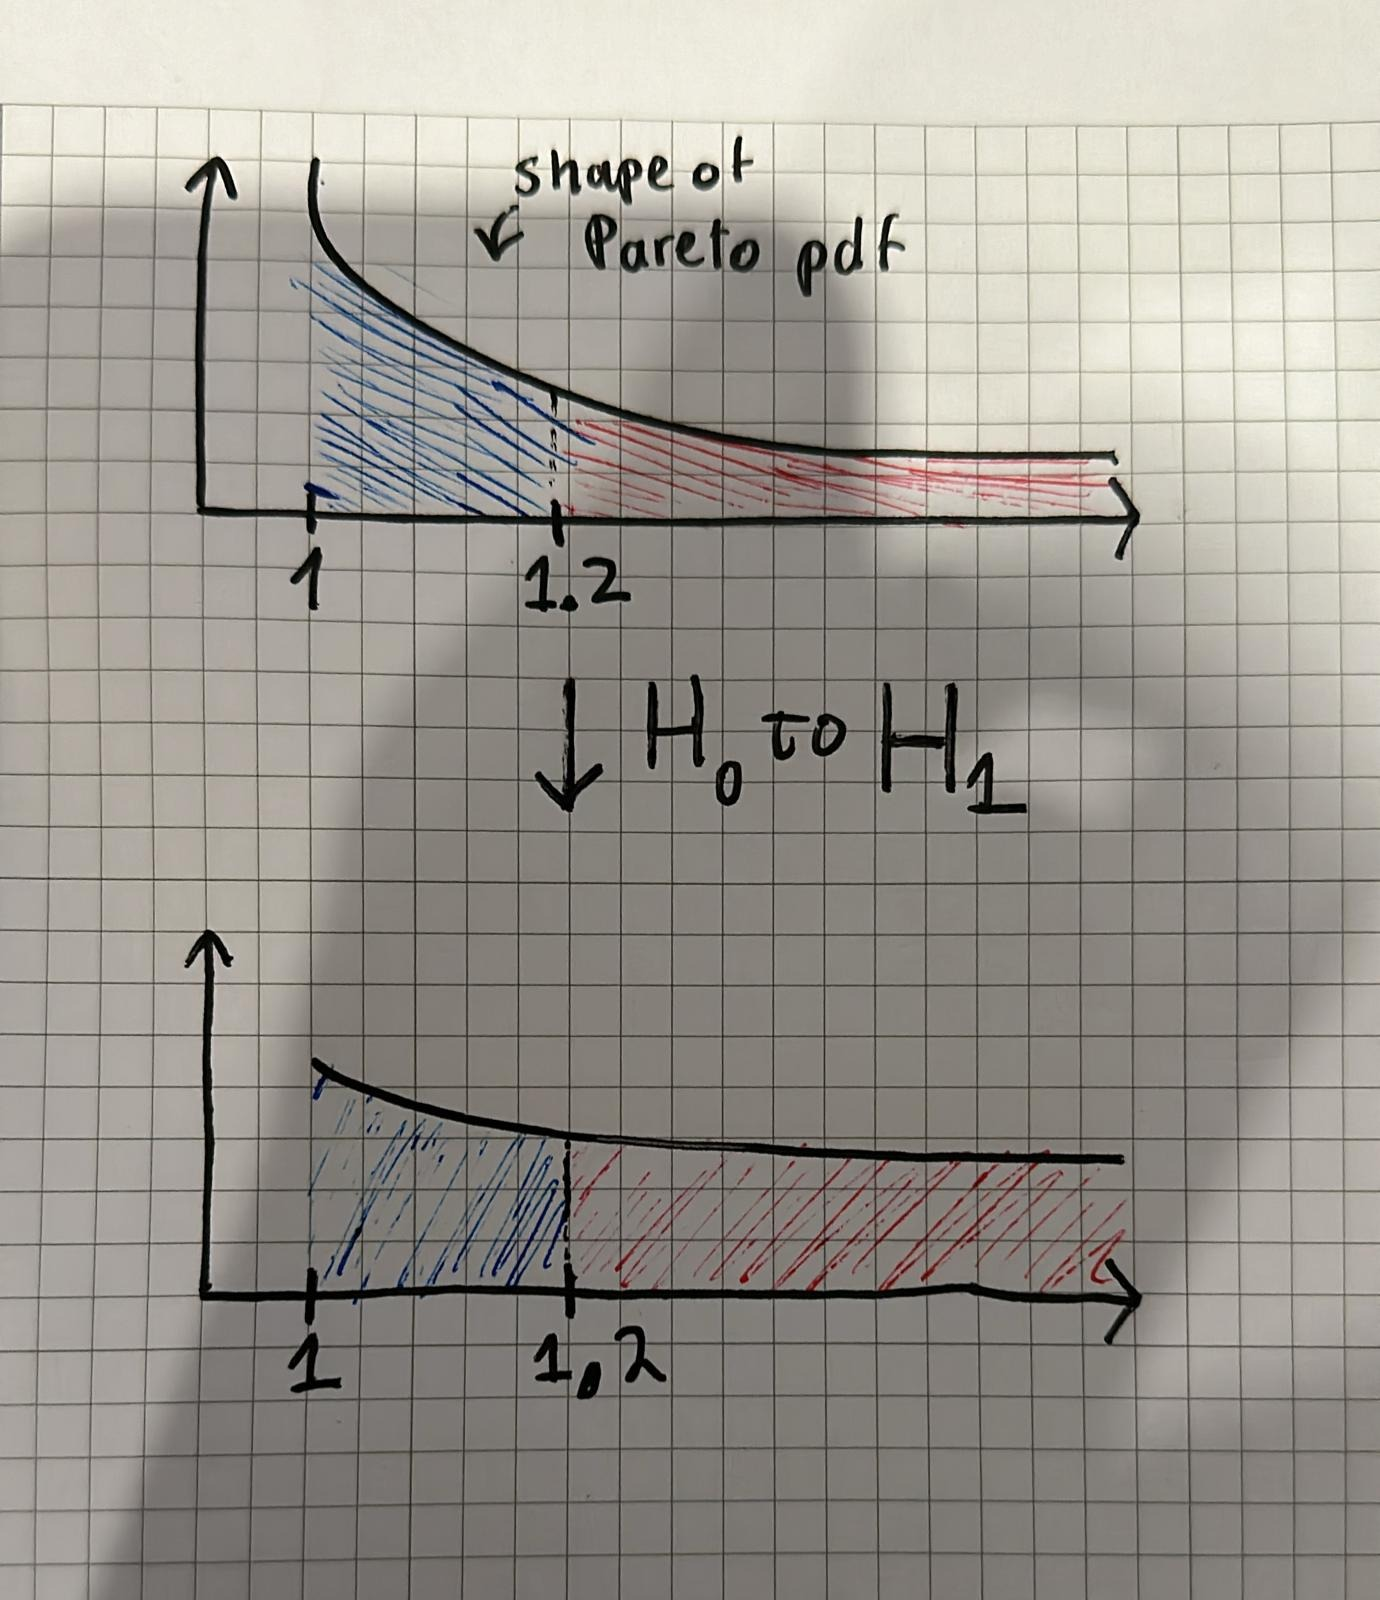 shape of
Pareto pdf
1
1.2
H₀ to H₁
1
1.2